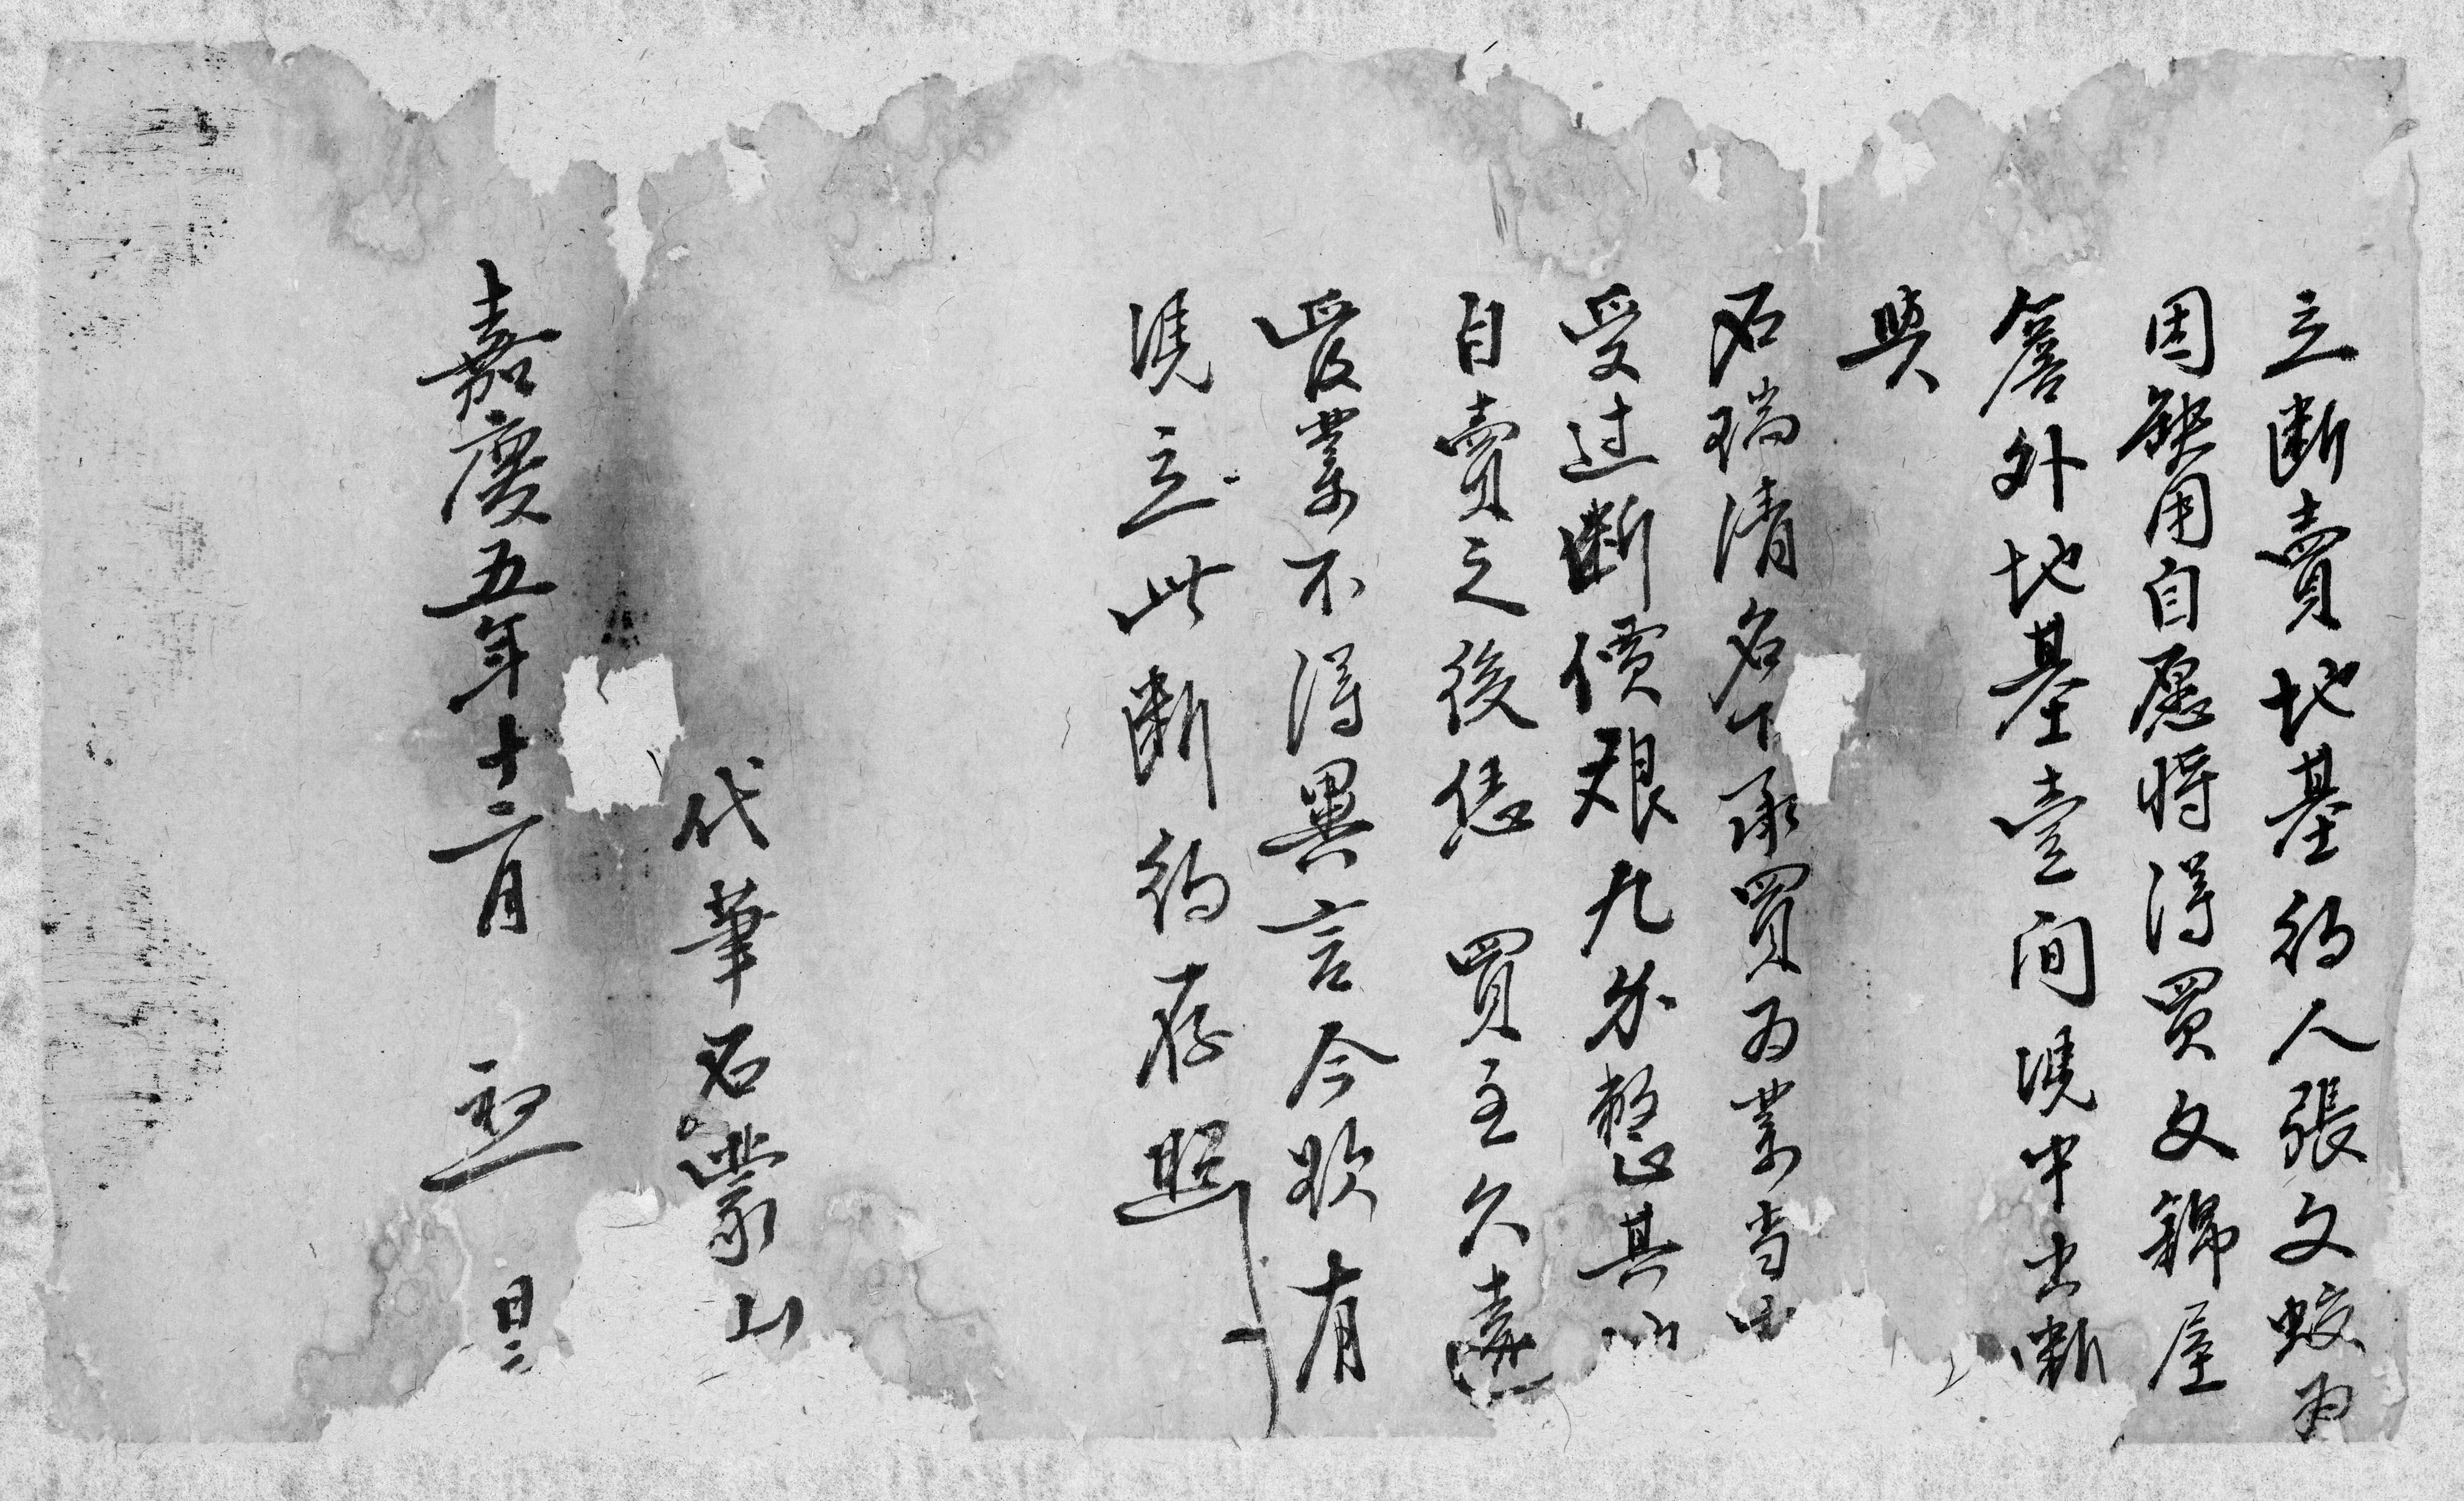 立断賣地基約人張文蛟為
因缺用自愿將得買文錦屋
簷外地基壹间憑中出断
與
石瑞清名下承買为業当中
受过断價艮九分整正其
自賣之後恁 買主久遠
管業不得異言今欲有
憑立此断約存照
代筆石蒙山
嘉慶五年十二月 立